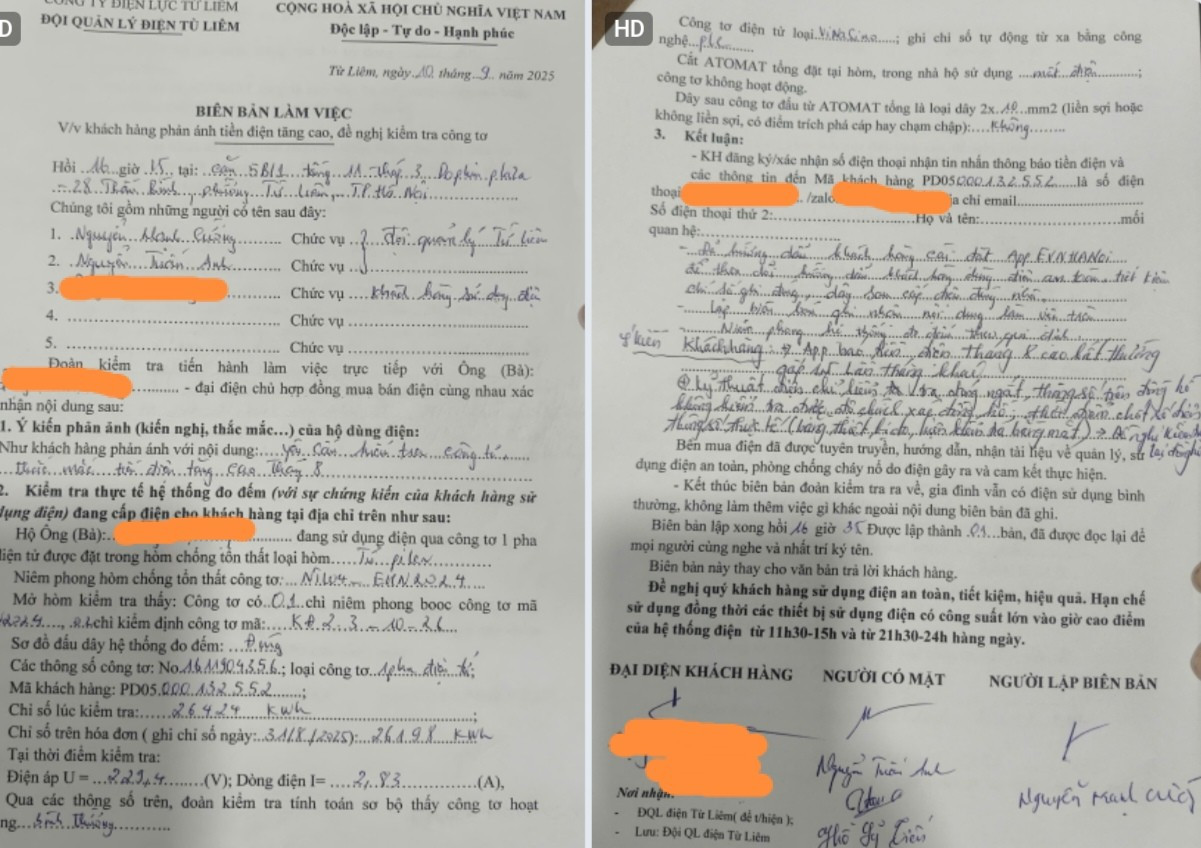 CÔNG TY ĐIỆN LỰC TỪ LIÊM
ĐỘI QUẢN LÝ ĐIỆN TỪ LIÊM
CỘNG HOÀ XÃ HỘI CHỦ NGHĨA VIỆT NAM
Độc lập - Tự do - Hạnh phúc
Từ Liêm, ngày 10 tháng 9 năm 2025
BIÊN BẢN LÀM VIỆC
V/v khách hàng phản ánh tiền điện tăng cao, đề nghị kiểm tra công tơ
Hồi 16 giờ 15 tại: căn 5B11 tầng 11 tháp 3 Dophin plaza
28 Trần Bình, phường Từ Liêm, TP Hà Nội
Chúng tôi gồm những người có tên sau đây:
1. Nguyễn Mạnh Cường Chức vụ đội quản lý Từ Liêm
2. Nguyễn Tuấn Anh Chức vụ
3. Chức vụ khách hàng sử dụng điện
4. Chức vụ
5. Chức vụ
Đoàn kiểm tra tiến hành làm việc trực tiếp với Ông (Bà):
- đại diện chủ hợp đồng mua bán điện cùng nhau xác
nhận nội dung sau:
1. Ý kiến phản ánh (kiến nghị, thắc mắc…) của hộ dùng điện:
Như khách hàng phản ánh với nội dung: yêu cầu kiểm tra công tơ
thắc mắc tiền điện tăng cao tháng 8
2. Kiểm tra thực tế hệ thống đo đếm (với sự chứng kiến của khách hàng sử
dụng điện) đang cấp điện cho khách hàng tại địa chỉ trên như sau:
Hộ Ông (Bà): đang sử dụng điện qua công tơ 1 pha
điện tử được đặt trong hòm chống tổn thất loại hòm
Niêm phong hòm chống tổn thất công tơ:
Mở hòm kiểm tra thấy: Công tơ có 01 chì niêm phong booc công tơ mã
chì kiểm định công tơ mã:
Sơ đồ đấu dây hệ thống đo đếm: Đúng
Các thông số công tơ: No.1611904356; loại công tơ 1pha điện tử;
Mã khách hàng: PD05.000132552;
Chỉ số lúc kiểm tra: 26424 kWh;
Chỉ số trên hóa đơn ( ghi chỉ số ngày: 31/8/2025): 26198 kWh
Tại thời điểm kiểm tra:
Điện áp U = 229,4 (V); Dòng điện I= 2,83 (A),
Qua các thông số trên, đoàn kiểm tra tính toán sơ bộ thấy công tơ hoạt
bình thường
HD
Công tơ điện tử loại VinaSino; ghi chỉ số tự động từ xa bằng công
nghệ plc
Cắt ATOMAT tổng đặt tại hòm, trong nhà hộ sử dụng mất điện;
công tơ không hoạt động.
Dây sau công tơ đấu từ ATOMAT tổng là loại dây 2x 10 mm2 (liền sợi hoặc
không liền sợi, có điểm trích phá cáp hay chạm chập): Không
3. Kết luận:
- KH đăng ký/xác nhận số điện thoại nhận tin nhắn thông báo tiền điện và
các thông tin đến Mã khách hàng PD05000132552 là số điện
thoại /zalo ịa chỉ email
Số điện thoại thứ 2: Họ và tên: mối
quan hệ:
- Đã hướng dẫn khách hàng cài đặt App EVNHANOI
để theo dõi hướng dẫn khách hàng dùng điện an toàn tiết kiệm
chỉ số ghi đúng,
- Lập biên bản ghi nhận nội dung làm việc trên
- Niêm phong hệ thống đo đếm theo quy định
Ý kiến khách hàng: App báo tiền điện tháng 8 cao bất thường
gấp tháng khác
Bên mua điện đã được tuyên truyền, hướng dẫn, nhận tài liệu về quản lý, sử
dụng điện an toàn, phòng chống cháy nổ do điện gây ra và cam kết thực hiện.
- Kết thúc biên bản đoàn kiểm tra ra về, gia đình vẫn có điện sử dụng bình
thường, không làm thêm việc gì khác ngoài nội dung biên bản đã ghi.
Biên bản lập xong hồi 16 giờ 35 Được lập thành 01 bản, đã được đọc lại để
mọi người cùng nghe và nhất trí ký tên.
Biên bản này thay cho văn bản trả lời khách hàng.
Đề nghị quý khách hàng sử dụng điện an toàn, tiết kiệm, hiệu quả. Hạn chế
sử dụng đồng thời các thiết bị sử dụng điện có công suất lớn vào giờ cao điểm
của hệ thống điện từ 11h30-15h và từ 21h30-24h hàng ngày.
ĐẠI DIỆN KHÁCH HÀNG NGƯỜI CÓ MẶT NGƯỜI LẬP BIÊN BẢN
Nguyễn Tuấn Anh
Nguyễn Mạnh Cường
Nơi nhận:
- ĐQL điện Từ Liêm( để t/hiện );
- Lưu: Đội QL điện Từ Liêm